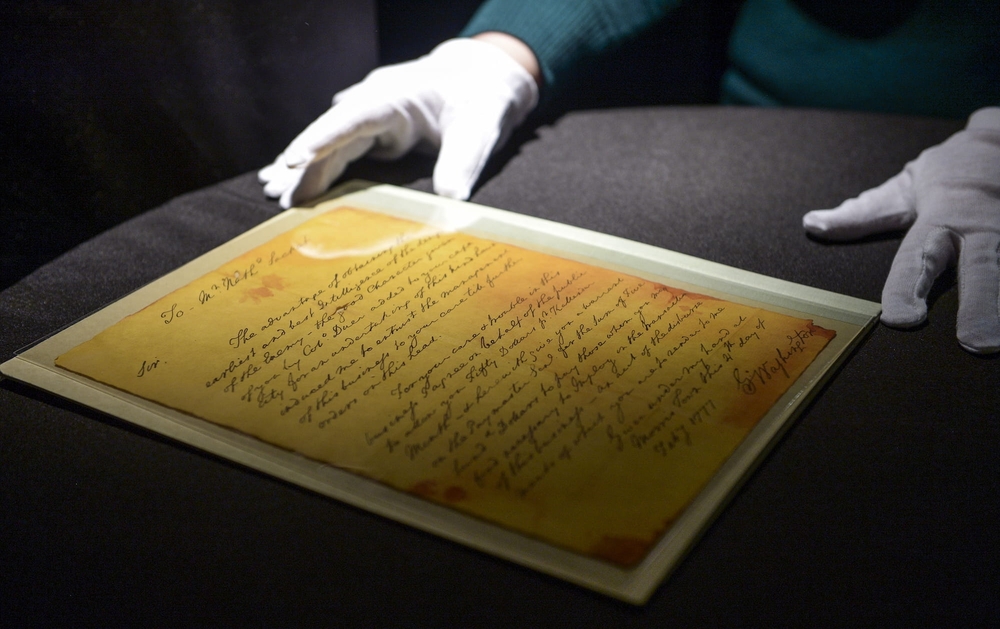 To - Mr Nathl Sackett
Sir.
The advantage of obtaining the
earliest and best Intelligence of the designs
of the Enemy - the good Character given
of you by Colo Duer added to your capa
city for an undertaking of this kind have
induced me to entrust the management
of this business to your care till further
orders on this head.
For your care & trouble in this
business I agree on behalf of the public
to allow you Fifty Dollars pr Kalendar
Month & herewith give you a warrant
on the Paymaster Genl for the sum of Five
hund d Dollars to pay those whom you may
find necessary to Imploy in the transaction
of this business - an acct of the disbursements
of which you are to render to me
Given under my hand at
Morris Town this 4th day of
Feby 1777
Go Washington